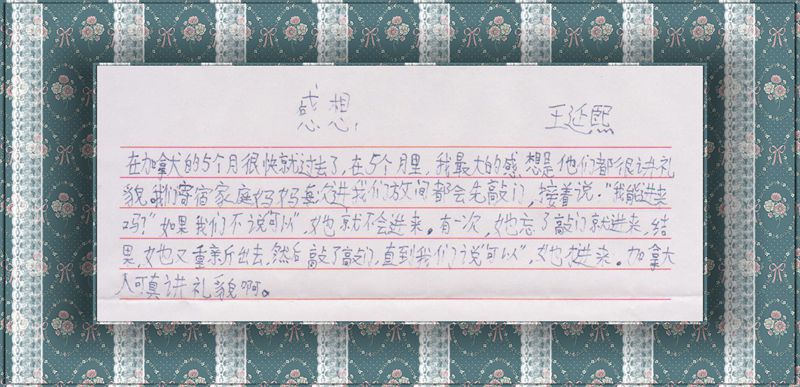 感想
王延熙
在加拿大的5个月很快就过去了,在5个月里,我最大的感想是他们都很讲礼
貌。我们寄宿家庭妈妈每次进我们放间都会先敲门,接着说:“我能进来
吗?”如果我们不说“可以”,她就不会进来。有一次,她忘了敲门就进来,结
果,她又重新出去,然后敲了敲门,直到我们说“可以”,她才进来。加拿大
人可真讲礼貌啊。